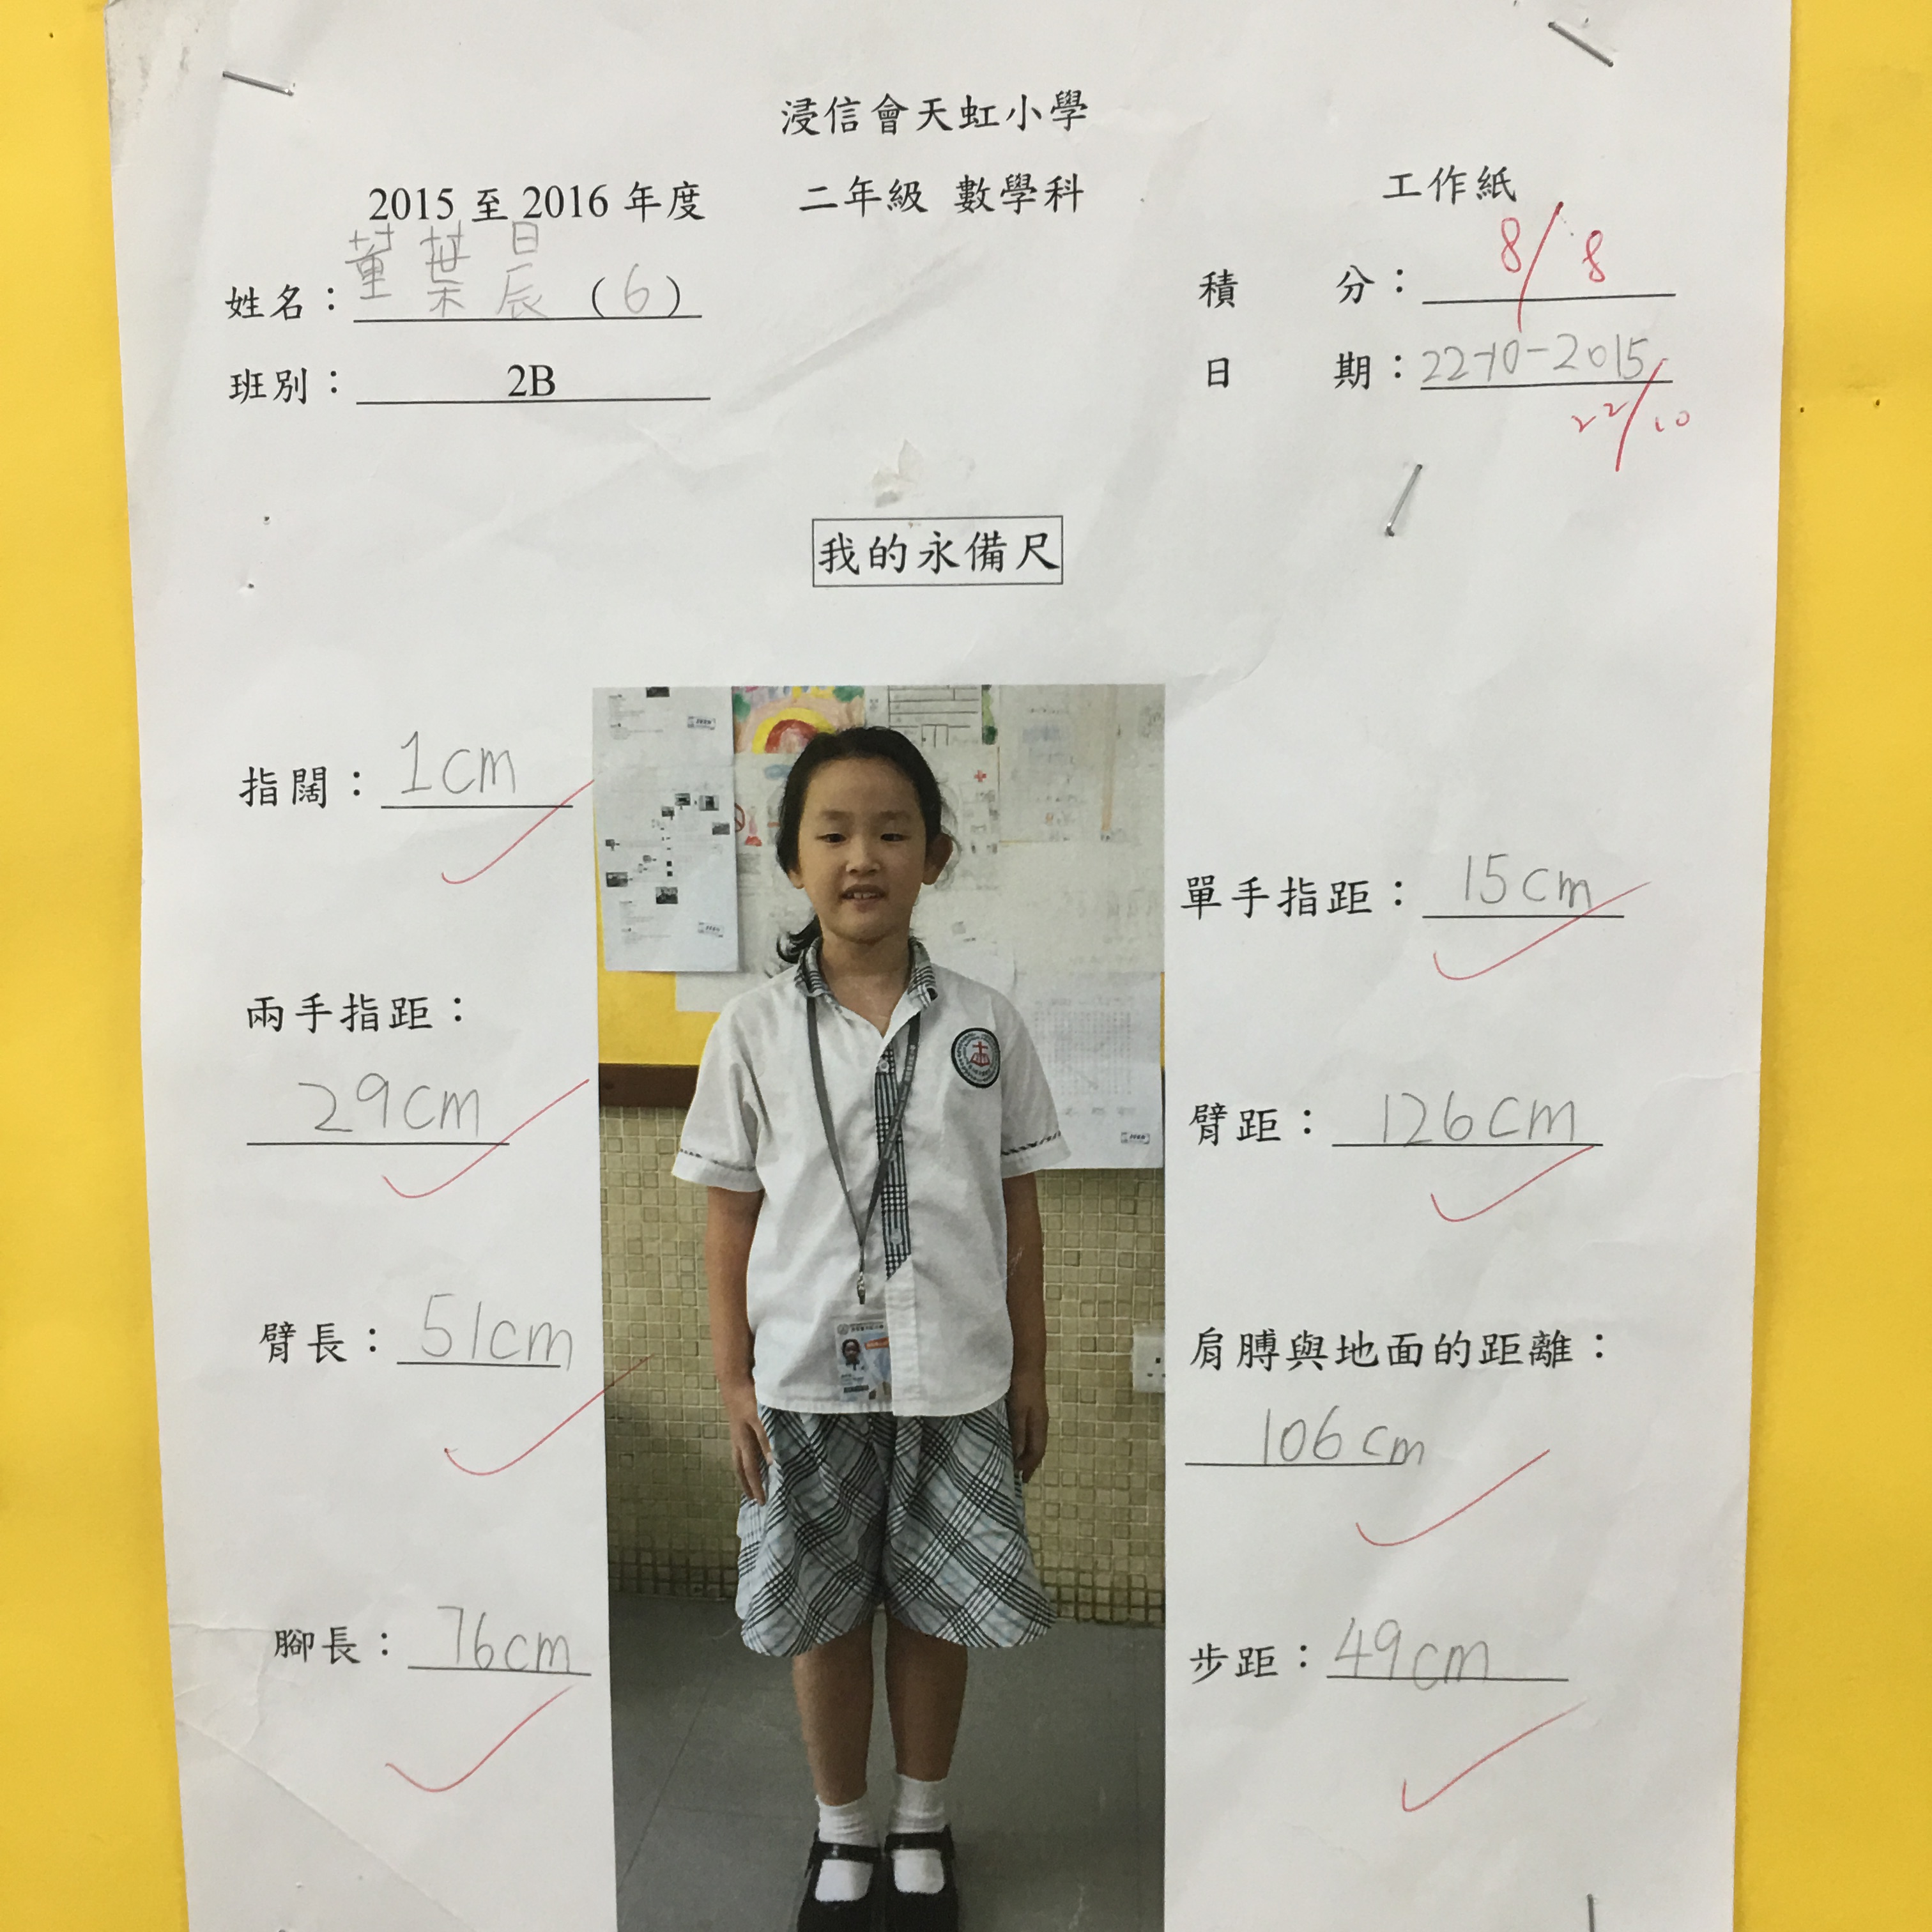 浸信會天虹小學
2015 至 2016 年度 二年級 數學科 工作紙
姓名：董葉晨 (6) 積分：8/8
班別：2B 日期：22-10-2015
22/10
我的永備尺
指闊：1cm
單手指距：15cm
兩手指距：
29cm
臂距：126cm
臂長：51cm
肩膊與地面的距離：
106cm
腳長：76cm
步距：49cm